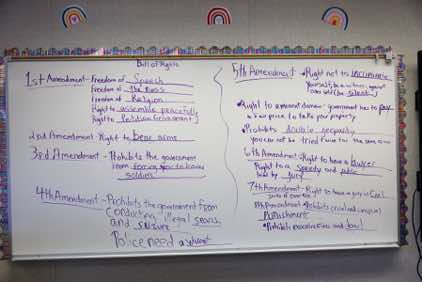 Bill of Rights
1st Amendment - Freedom of Speech
Freedom of the Press
Freedom of Religion
Right to assemble peacefully
Right to Petition Government
2nd Amendment - Right to bear arms
3rd Amendment - Prohibits the government
from forcing you to house
soldiers
4th Amendment - Prohibits the government from
conducting illegal search
and seizure
Police need a
5th Amendment - Right not to incriminate
yourself, be a witness against
(silent)
Right to eminent domain - government has to pay
price to take your property
Prohibits double jeopardy
you can not be tried twice for the same
6th Amendment - Right to have a lawyer
Right to a speedy and public
by jury
7th Amendment - Right to have a jury in Civil
8th Amendment - Prohibits cruel and unusual
Punishment
Prohibits excessive fines and bail